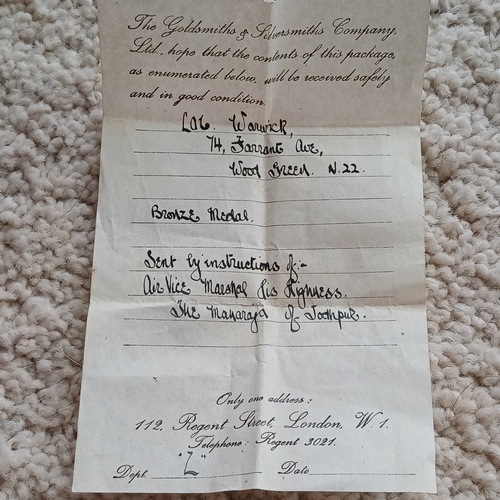 The Goldsmiths & Silversmiths Company,
Ltd., hope that the contents of this package,
as enumerated below, will be received safely
and in good condition.
Warwick,
74, Farrant Ave,
Wood Green. N.22.
Bronze Medal.
Sent by instructions of:-
Air Vice Marshal His Highness.
The Maharaja of Jodhpur.
Only one address:
112, Regent Street, London, W.1.
Telephone: Regent 3021.
Dept. "L" Date